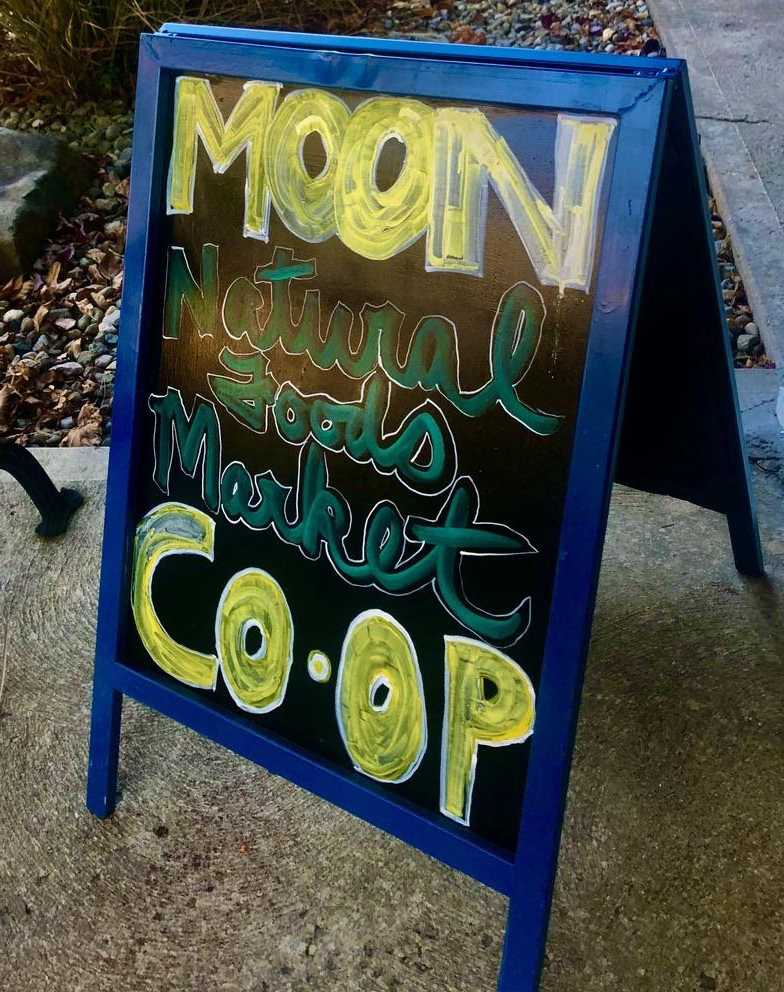 MOON
Natural
Foods
Market
CO·OP